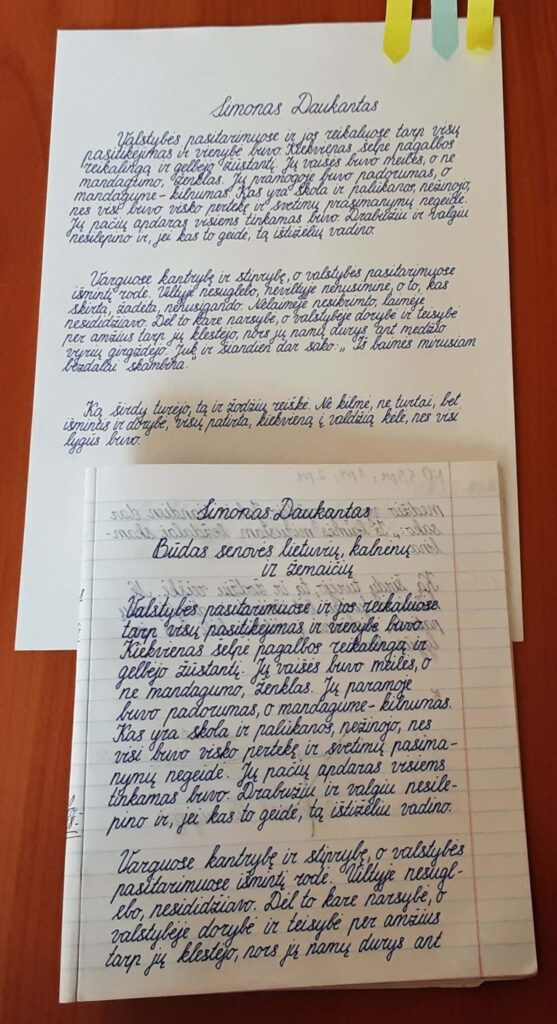 Simonas Daukantas
Valstybės pasitarimuose ir jos reikaluose tarp visų
pasitikėjimas ir vienybė buvo. Kiekvienas šelpė pagalbos
reikalingą ir gelbėjo žūstantį. Jų vaišės buvo meilės, o ne
mandagumo, ženklas. Jų pramogoje buvo padorumas, o
mandagume - kilnumas. Kas yra skola ir palūkanos, nežinojo,
nes visi buvo visko pertekę ir svetimų prasimanymų negeidė.
Jų pačių apdaras visiems tinkamas buvo. Drabužiu ir valgiu
nesilepino ir, jei kas to geidė, tą ištižėliu vadino.
Varguose kantrybę ir stiprybę, o valstybės pasitarimuose
išmintį rodė. Viltyje nesuglebo, neviltyje nenusiminė, o to, kas
skirta, žadėta, nenusigando. Nelaimėje nesikrimto, laimėje
nesididžiavo. Dėl to karė narsybė, o valstybėje dorybė ir teisybė
per amžius tarp jų klestėjo, nors jų namų durys ant medžio
vyrių girgždėjo. Juk ir šiandien dar sako: „Iš baimės mirusiam
bezdalai skambina."
Ką širdy turėjo, tą ir žodžiu reiškė. Ne kilmė, ne turtai, bet
išmintis ir dorybė, visų patirta, kiekvieną į valdžią kėlė, nes visi
lygūs buvo.
Simonas Daukantas
Būdas senovės lietuvių, kalnėnų
ir žemaičių
Valstybės pasitarimuose ir jos reikaluose
tarp visų pasitikėjimas ir vienybė buvo.
Kiekvienas šelpė pagalbos reikalingą ir
gelbėjo žūstantį. Jų vaišės buvo meilės, o
ne mandagumo, ženklas. Jų paramoje
buvo padorumas, o mandagume - kilnumas.
Kas yra skola ir palūkanos, nežinojo, nes
visi buvo visko pertekę ir svetimų pasima-
nymų negeidė. Jų pačių apdaras visiems
tinkamas buvo. Drabužiu ir valgiu nesile-
pino ir, jei kas to geidė, tą ištižėliu vadino.
Varguose kantrybę ir stiprybę, o valstybės
pasitarimuose išmintį rodė. Viltyje nesugl-
ebo, nesididžiavo. Dėl to karė narsybė, o
valstybėje dorybė ir teisybė per amžius
tarp jų klestėjo, nors jų namų durys ant